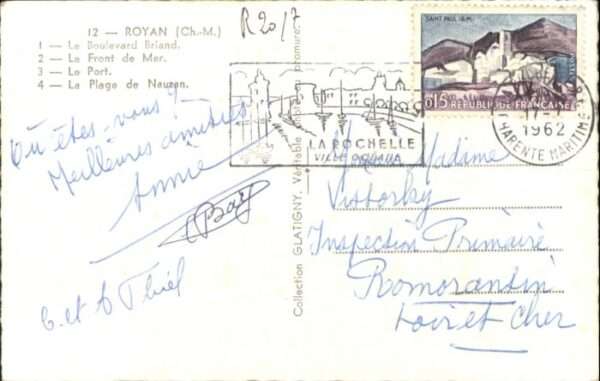 12 — ROYAN (Ch.-M.)
1 — Le Boulevard Briand.
2 — Le Front de Mer.
3 — Le Port.
4 — La Plage de Nauzan.
R 20/7
Où êtes-vous?
Meilleures amitiés
Annie
C. et A Thiel
Collection GLATIGNY. Véritable photo au bromure
LA ROCHELLE
VILLE
1962
CHARENTE MARITIME
SAINT PAUL
0,15 REPUBLIQUE FRANÇAISE
Madame
Inspection Primaire
Romorantin
Loir et Cher